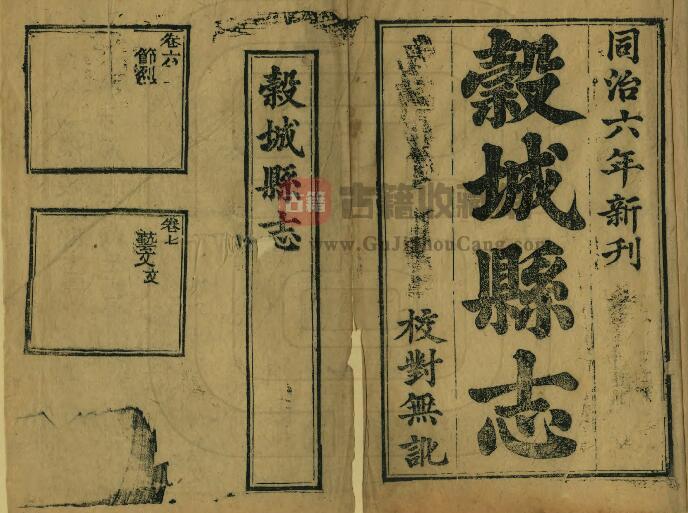 同治六年新刊
穀城縣志
校對無訛
穀城縣志
卷六
節烈
卷七
藝文
古籍 古籍收藏
www.GuJiShouCang.com